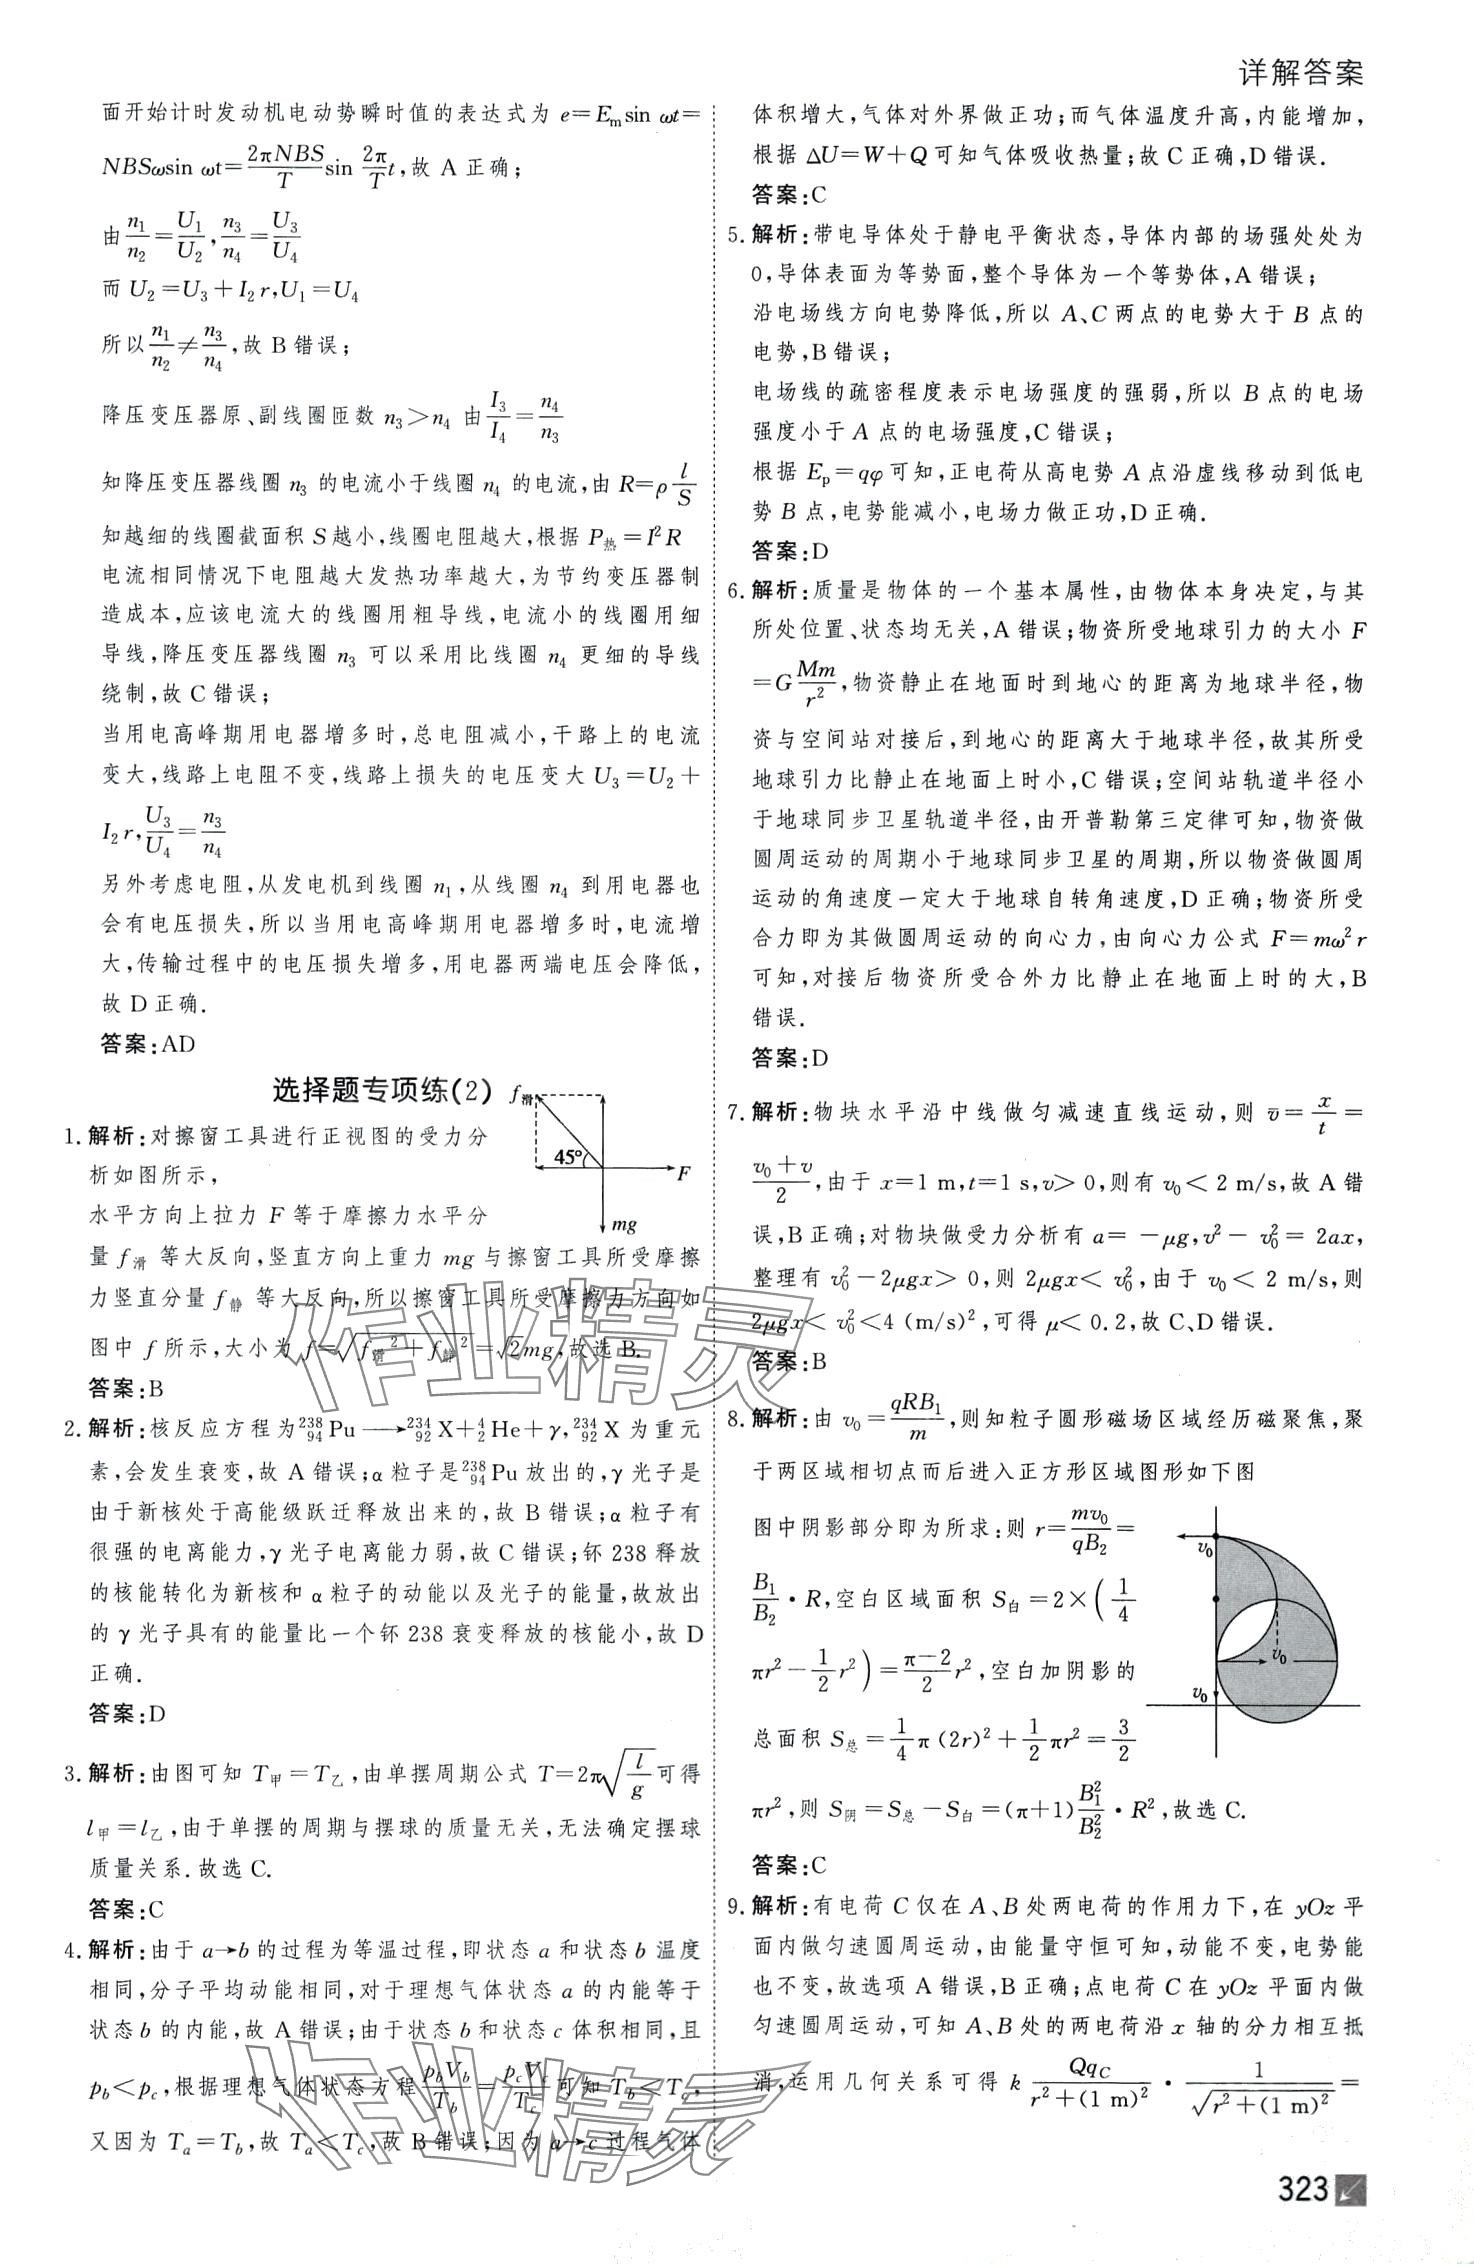 详解答案
面开始计时发动机电动势瞬时值的表达式为 e=Eₘsin ωt=
NBSωsin ωt=2πNBS/T sin 2π/T t,故 A 正确;
由 n₁/n₂=U₁/U₂,n₃/n₄=U₃/U₄
而 U₂=U₃+I₂r,U₁=U₄
所以 n₁/n₂≠n₃/n₄,故 B 错误;
降压变压器原、副线圈匝数 n₃>n₄ 由 I₃/I₄=n₄/n₃
知降压变压器线圈 n₃ 的电流小于线圈 n₄ 的电流,由 R=ρ l/S
知越细的线圈截面积 S 越小,线圈电阻越大,根据 P热=I²R
电流相同情况下电阻越大发热功率越大,为节约变压器制
造成本,应该电流大的线圈用粗导线,电流小的线圈用细
导线,降压变压器线圈 n₃ 可以采用比线圈 n₄ 更细的导线
绕制,故 C 错误;
当用电高峰期用电器增多时,总电阻减小,干路上的电流
变大,线路上电阻不变,线路上损失的电压变大 U₃=U₂+
I₂r,U₃/U₄=n₃/n₄
另外考虑电阻,从发电机到线圈 n₁,从线圈 n₄ 到用电器也
会有电压损失,所以当用电高峰期用电器增多时,电流增
大,传输过程中的电压损失增多,用电器两端电压会降低,
故 D 正确.
答案:AD
选择题专项练(2)
f滑
45°
F
mg
1. 解析:对擦窗工具进行正视图的受力分
析如图所示,
水平方向上拉力 F 等于摩擦力水平分
量 f滑 等大反向,竖直方向上重力 mg 与擦窗工具所受摩擦
力竖直分量 f静 等大反向,所以擦窗工具所受摩擦力方向如
图中 f 所示,大小为 f=√(f滑²+f静²)=√2mg,故选 B.
答案:B
2. 解析:核反应方程为²³⁸₉₄Pu⟶²³⁴₉₂X+⁴₂He+γ,²³⁴₉₂X 为重元
素,会发生衰变,故 A 错误;α 粒子是²³⁸₉₄Pu 放出的,γ 光子是
由于新核处于高能级跃迁释放出来的,故 B 错误;α 粒子有
很强的电离能力,γ 光子电离能力弱,故 C 错误;钚 238 释放
的核能转化为新核和 α 粒子的动能以及光子的能量,故放出
的 γ 光子具有的能量比一个钚 238 衰变释放的核能小,故 D
正确.
答案:D
3. 解析:由图可知 T甲=T乙,由单摆周期公式 T=2π√(l/g)可得
l甲=l乙,由于单摆的周期与摆球的质量无关,无法确定摆球
质量关系.故选 C.
答案:C
4. 解析:由于 a→b 的过程为等温过程,即状态 a 和状态 b 温度
相同,分子平均动能相同,对于理想气体状态 a 的内能等于
状态 b 的内能,故 A 错误;由于状态 b 和状态 c 体积相同,且
p_b<p_c,根据理想气体状态方程 p_bV_b/T_b=p_cV_c/T_c 可知 T_b<T_c,
又因为 Tₐ=T_b,故 Tₐ<T_c,故 B 错误;因为 a→c 过程气体
体积增大,气体对外界做正功;而气体温度升高,内能增加,
根据 ΔU=W+Q 可知气体吸收热量;故 C 正确,D 错误.
答案:C
5. 解析:带电导体处于静电平衡状态,导体内部的场强处处为
0,导体表面为等势面,整个导体为一个等势体,A 错误;
沿电场线方向电势降低,所以 A、C 两点的电势大于 B 点的
电势,B 错误;
电场线的疏密程度表示电场强度的强弱,所以 B 点的电场
强度小于 A 点的电场强度,C 错误;
根据 Eₚ=qφ 可知,正电荷从高电势 A 点沿虚线移动到低电
势 B 点,电势能减小,电场力做正功,D 正确.
答案:D
6. 解析:质量是物体的一个基本属性,由物体本身决定,与其
所处位置、状态均无关,A 错误;物资所受地球引力的大小 F
=G Mm/r²,物资静止在地面时到地心的距离为地球半径,物
资与空间站对接后,到地心的距离大于地球半径,故其所受
地球引力比静止在地面上时小,C 错误;空间站轨道半径小
于地球同步卫星轨道半径,由开普勒第三定律可知,物资做
圆周运动的周期小于地球同步卫星的周期,所以物资做圆周
运动的角速度一定大于地球自转角速度,D 正确;物资所受
合力即为其做圆周运动的向心力,由向心力公式 F=mω²r
可知,对接后物资所受合外力比静止在地面上时的大,B
错误.
答案:D
7. 解析:物块水平沿中线做匀减速直线运动,则 v̄=x/t=
(v₀+v)/2,由于 x=1 m,t=1 s,v>0,则有 v₀<2 m/s,故 A 错
误,B 正确;对物块做受力分析有 a=-μg,v²-v₀²=2ax,
整理有 v₀²-2μgx>0,则 2μgx<v₀²,由于 v₀<2 m/s,则
2μgx<v₀²<4 (m/s)²,可得 μ<0.2,故 C、D 错误.
答案:B
8. 解析:由 v₀=qRB₁/m,则知粒子圆形磁场区域经历磁聚焦,聚
于两区域相切点而后进入正方形区域图形如下图
图中阴影部分即为所求:则 r=mv₀/qB₂=
B₁/B₂·R,空白区域面积 S白=2×(1/4
πr²-1/2r²)=(π-2)/2 r²,空白加阴影的
总面积 S总=1/4π(2r)²+1/2πr²=3/2
πr²,则 S阴=S总-S白=(π+1)B₁²/B₂²·R²,故选 C.
v₀
v₀
v₀
答案:C
9. 解析:有电荷 C 仅在 A、B 处两电荷的作用力下,在 yOz 平
面内做匀速圆周运动,由能量守恒可知,动能不变,电势能
也不变,故选项 A 错误,B 正确;点电荷 C 在 yOz 平面内做
匀速圆周运动,可知 A、B 处的两电荷沿 x 轴的分力相互抵
消,运用几何关系可得 k Qq_C/(r²+(1 m)²)·1/√(r²+(1 m)²)=
作业精灵
作业精灵
323